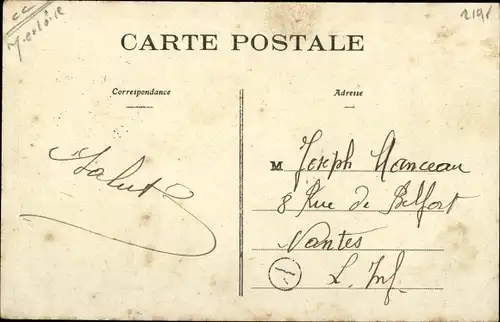 CC
M. et Loire
2198
CARTE POSTALE
Correspondance
Adresse
Salut
M Joseph Manceau
8 Rue de Belfort
Nantes
L. Inf.